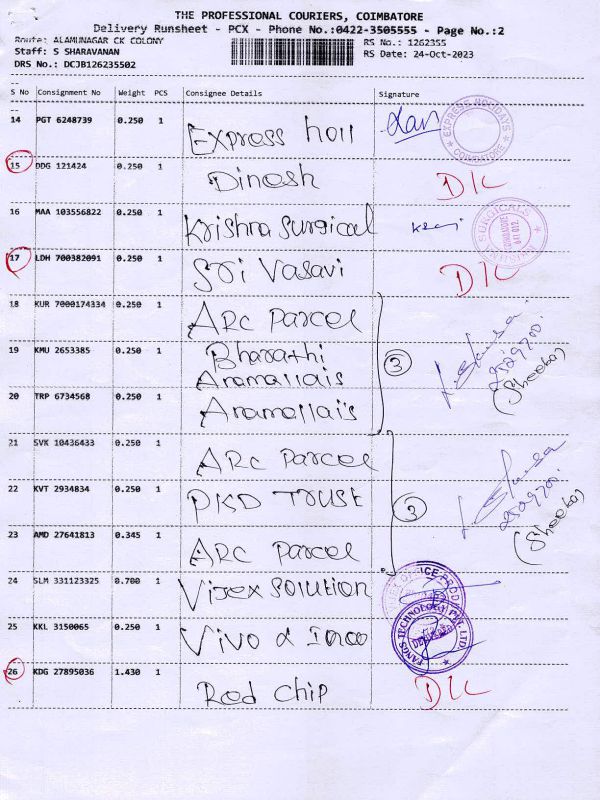 THE PROFESSIONAL COURIERS, COIMBATORE
Delivery Runsheet - PCX - Phone No.:0422-3505555 - Page No.:2
Route: ALAMUNAGAR CK COLONY
RS No.: 1262355
Staff: S SHARAVANAN
RS Date: 24-Oct-2023
DRS No.: DCJB126235502
S No Consignment No Weight PCS Consignee Details Signature
14 PGT 6248739 0.250 1 Express holi
EXPRESS HOLIDAYS
COIMBATORE
15 DDG 121424 0.250 1 Dinesh D/L
16 MAA 103556822 0.250 1 Krishna Surgical
KRISHNA SURGICALS
17 LDH 700382091 0.250 1 Sri Vasavi D/L
18 KUR 7000174334 0.250 1 ARC Parcel
19 KMU 2653385 0.250 1 Bharathi
Anamallais
3
(Sheeba)
20 TRP 6734568 0.250 1 Anamallais
21 SVK 10436433 0.250 1 ARC Parcel
22 KVT 2934834 0.250 1 PKD TRUST
3
(Sheeba)
23 AMD 27641813 0.345 1 ARC Parcel
24 SLM 331123325 0.700 1 Virex Solution
25 KKL 3150065 0.250 1 Vivo &
FANGS TECHNOLOGY PVT. LTD.
26 KDG 27895036 1.430 1 Red chip D/L